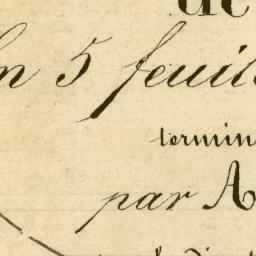 de
En 5 feuil
termin
par A